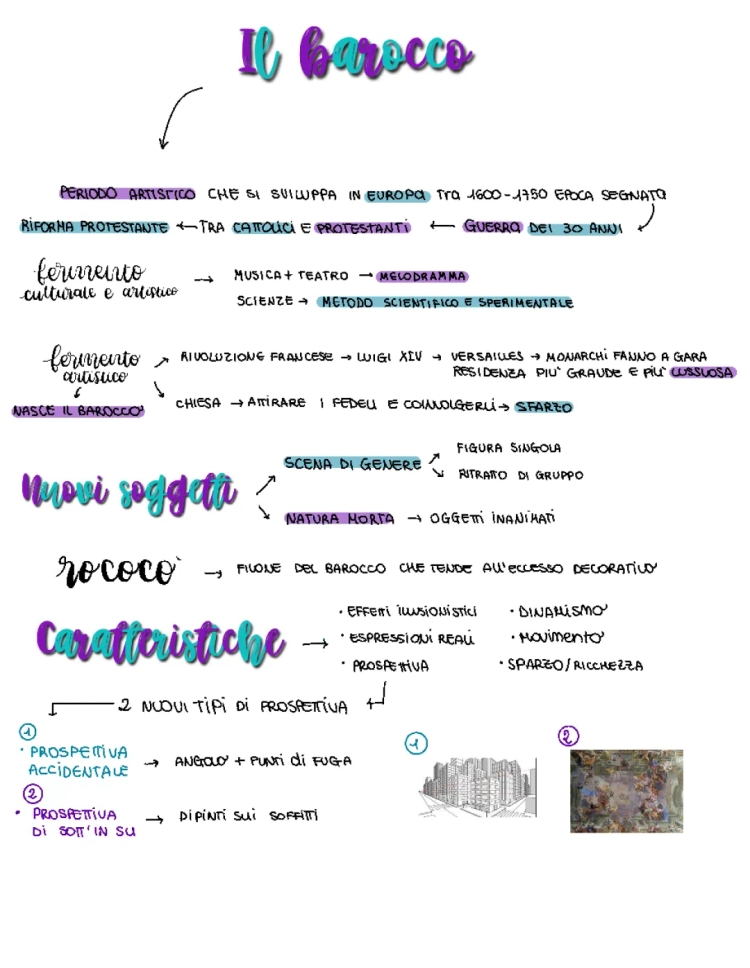 Il barocco
PERIODO ARTISTICO CHE SI SVILUPPA IN EUROPA TRA 1600-1750 EPOCA SEGNATA
RIFORMA PROTESTANTE ← TRA CATTOLICI E PROTESTANTI ← GUERRA DEI 30 ANNI
fermento
culturale e artistico
→ MUSICA + TEATRO → MELODRAMMA
SCIENZE → METODO SCIENTIFICO E SPERIMENTALE
fermento
artistico
NASCE IL BAROCCO
RIVOLUZIONE FRANCESE → LUIGI XIV → VERSAILLES → MONARCHI FANNO A GARA
RESIDENZA PIU' GRANDE E PIU' LUSSUOSA
CHIESA → ATTIRARE I FEDELI E COINVOLGERLI → SFARZO
Nuovi soggetti
SCENA DI GENERE
FIGURA SINGOLA
RITRATO DI GRUPPO
NATURA MORTA → OGGETTI INANIMATI
rococo' → FILONE DEL BAROCCO CHE TENDE ALL'ECCESSO DECORATIVO
Caratteristiche →
· EFFETTI ILLUSIONISTICI
· ESPRESSIONI REALI
· PROSPETTIVA
· DINAMISMO
· MOVIMENTO
· SFARZO/RICCHEZZA
2 NUOVI TIPI DI PROSPETTIVA
1
· PROSPETTIVA
ACCIDENTALE → ANGOLO + PUNTI di FUGA
2
· PROSPETTIVA
Di SOTT'IN SU → DIPINTI SUI SOFFITTI
1
2